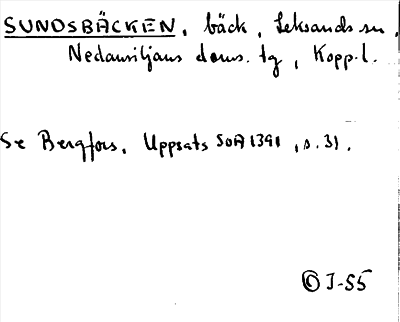 SUNDSBÄCKEN, bäck, Leksands sn,
Nedansiljans doms. tg, Kopp. l.
Se Bergfors, Uppsats SOA 1391, s. 31.
© J-S5